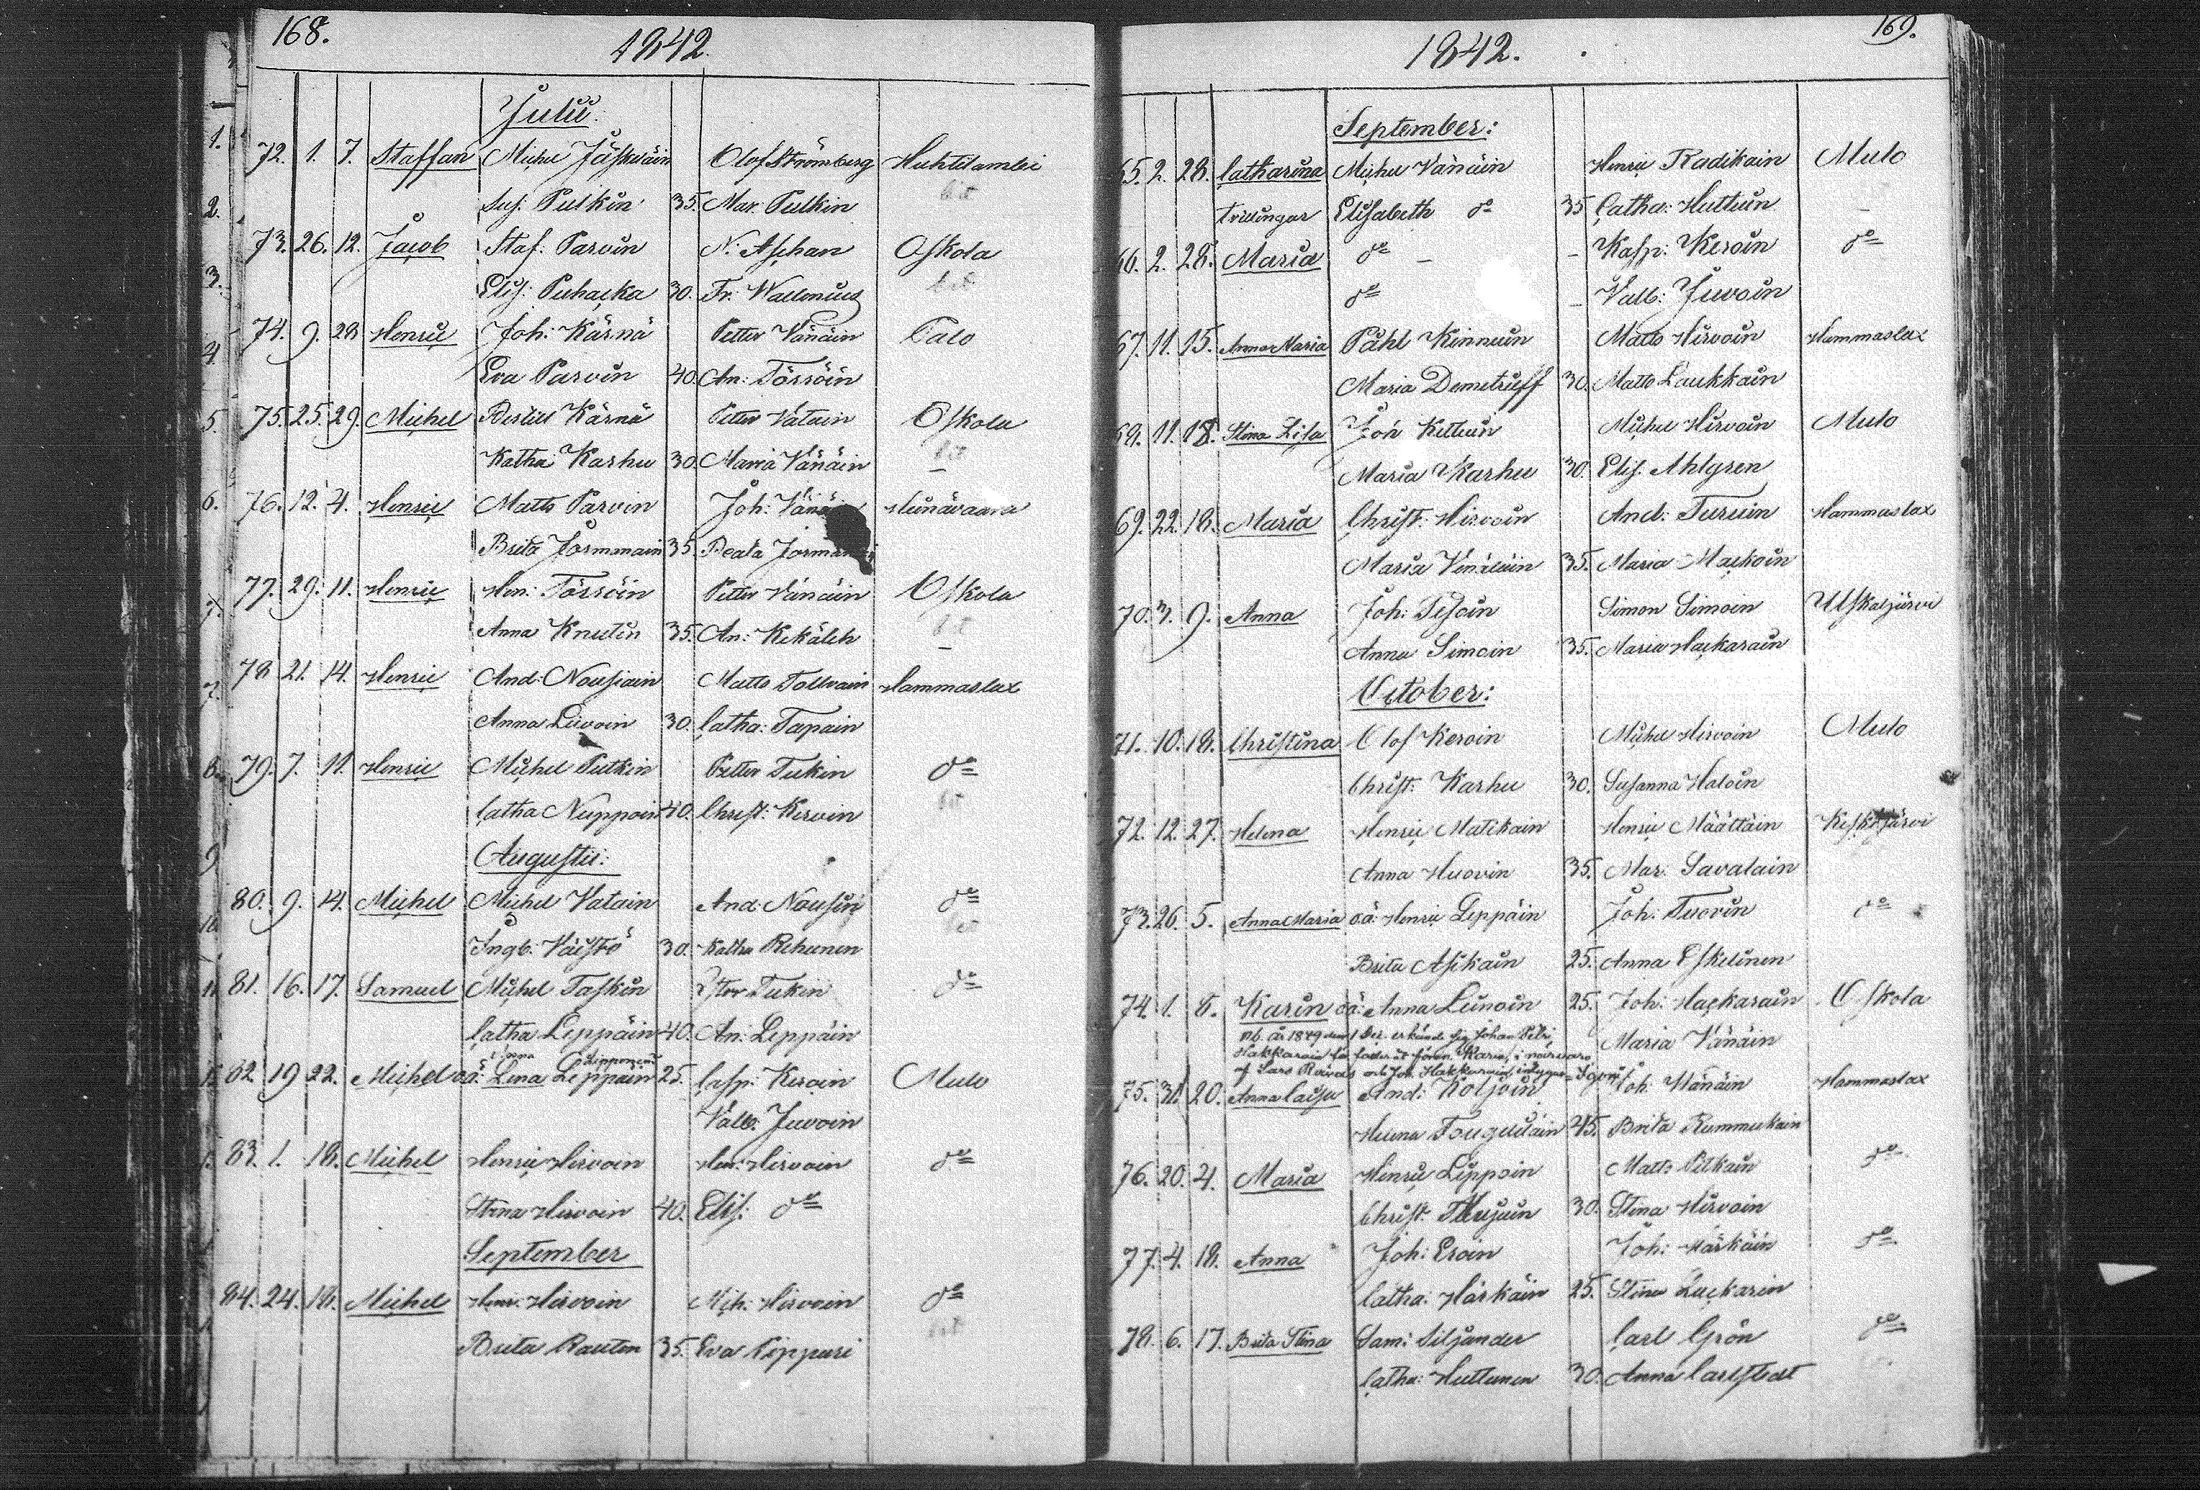 168.
1842.
Julii.
72. 1. 7. Staffan Michel Jäskeläin Olof Strömberg Huhtilambi
Sus. Pulkin 35. Mar. Pulkin
73. 26. 12. Jacob Staf: Parvin N. Aschan Oskola
Elis: Puhacka 30. Fr. Wallenius
74. 9. 28 Henric Joh: Kärnä Petter Vänäin Palo
Eva Parvin 40. An: Törröin
75. 25. 29. Michel Bertill Kärnä Petter Vatain Oskola
Katha Karhu 30. Maria Vänäin
76. 12. 4. Henric Matts Parvin Joh: Niinävaara
Brita Jormanain 35. Beata
77. 29. 11. Henric Hen: Törröin Petter Vänäin Oskola
Anna Knutin 35. An: Kekäleh
78 21. 14. Henric And: Nousiain Matts Tolvain Hammaslax
Anna Livoin 30. Catha: Tapain
79. 7. 11. Henric Michel Putkin Petter Tukin do
Catha Nuppoin 40. Christ: Kervin
Augustii:
80. 9. 14. Michel Michel Vatain And: do
Ingb: Väistö 30. Katha Rehunen
81. 16. 17. Samuel Michel Taskin Tukin do
Catha Leppäin 40. An: Leppäin
82 19 22. Michel oä: Lina Leppäin 25. Casp: Keroin Mulo
Valb: Juvoin
83. 1. 18. Michel Henric Hirvoin Hen: Hirvoin do
Stina Hirvoin 40. Elis: do
September
84. 24. 18. Michel Henr: Hirvoin Mich: Hirvoin do
Brita Rautin 35. Eva Pippuri
169.
1842.
September:
65. 2. 28. Catharina Michel Vänäin Henric Radikain Mulo
Trillingar Elisabeth do 35 Catha: Huttuin
66. 2. 28. Maria do – – Kasp: Keroin do
do – Valb: Juvoin
67. 11. 15. Anna Maria Påhl Kinnuin Matts Hirvoin Hammaslax
Maria Demetrieff 30. Matts Laukkain
69. 11. 18. Stina Lisa Joh Kettuin Michel Hirvoin Mulo
Maria Karhu 30. Elis. Ahlgren
69. 22. 18. Maria Christ: Hirvoin And: Turuin Hammaslax
Maria Venäläin 35. Maria Mackoin
70. 3. 9. Anna Joh: Simon Simoin
Anna Simoin 35. Maria Hackarain
October:
71. 10. 18. Christina Olof Keroin Michel Hirvoin Mulo
Christ: Karhu 30. Susanna Haloin
72. 12. 27. Helena Henric Matikain Henric Määttäin Keskijärvi
Anna Huovin 35. Mar: Savalain
73. 26. 5. Anna Maria oä: Henric Leppäin Joh: Tuovin do
Brita Asikain 25. Anna Eskelinen
74. 1. 8. Karin oä: Anna Linoin 25. Joh: Hackarain Oskola
Nb. år 1849 den 1 Dec. erkände sig Johan Petr. Maria Vänäin
Hakkarain för fader åt förenn. Karin, i närvaro
af Lars och Joh. Hakkarain
75. 31. 20. Anna Caisa And: Koljoin Joh: Vänäin Hammaslax
Helena Tougulain 45. Brita Rummukain
76. 20. 4. Maria Henric Lippoin Matts Pitkäin do
Christ: 30. Stina Hirvoin
77. 4. 18. Anna Joh: Eroin Joh: Härkäin do
Catha: Härkäin 25. Stina Luckarin
78. 6. 17. Brita Stina Sam: Siljander Carl Grön do
Catha: Huttunen 30. Anna Carlstedt